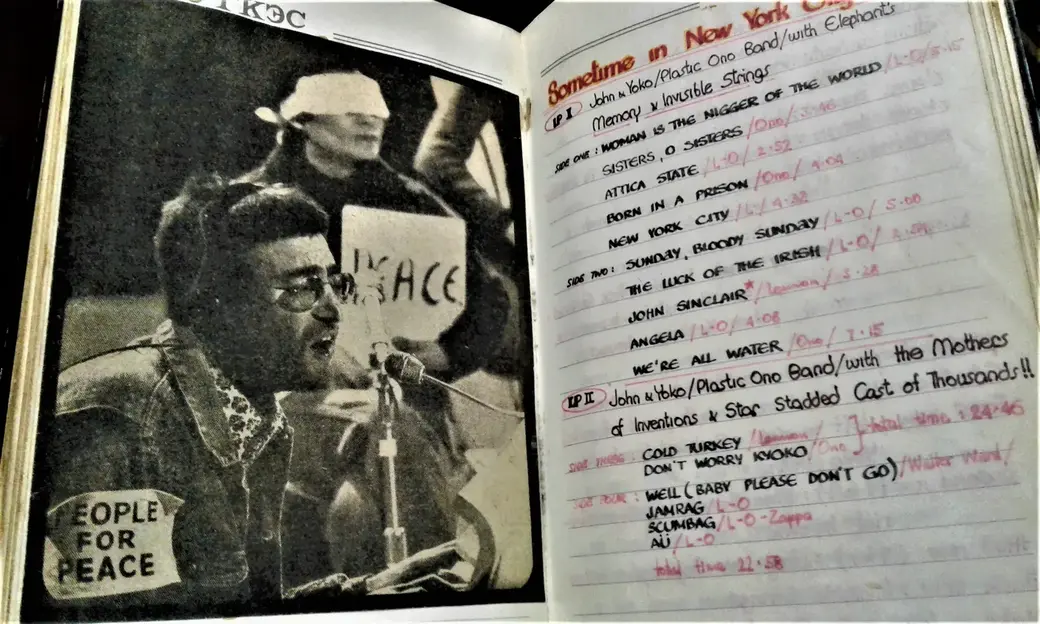 PEACE
PEOPLE
FOR
PEACE
Sometime in New York City
LP I John & Yoko/Plastic Ono Band/with Elephant's
Memory & Invisible Strings
SIDE ONE: WOMAN IS THE NIGGER OF THE WORLD /L-O/5·15
SISTERS, O SISTERS /Ono/ 3·46
ATTICA STATE /L-O/ 2·52
BORN IN A PRISON /Ono/ 4·04
NEW YORK CITY /L/ 4·32
SIDE TWO: SUNDAY, BLOODY SUNDAY /L-O/ 5·00
THE LUCK OF THE IRISH /L-O/
JOHN SINCLAIR* /Lennon/ 3·28
ANGELA /L-O/ 4·08
WE'RE ALL WATER /Ono/ 7·15
LP II John & Yoko/Plastic Ono Band/with the Mothers
of Inventions & Star Stadded Cast of Thousands!!
SIDE THREE: COLD TURKEY /Lennon/ total time: 24·46
DON'T WORRY KYOKO/Ono
SIDE FOUR: WELL (BABY PLEASE DON'T GO)/Walter Ward/
JAMRAG/L-O
SCUMBAG/L-O-Zappa
AÜ/L-O
total time 22·58